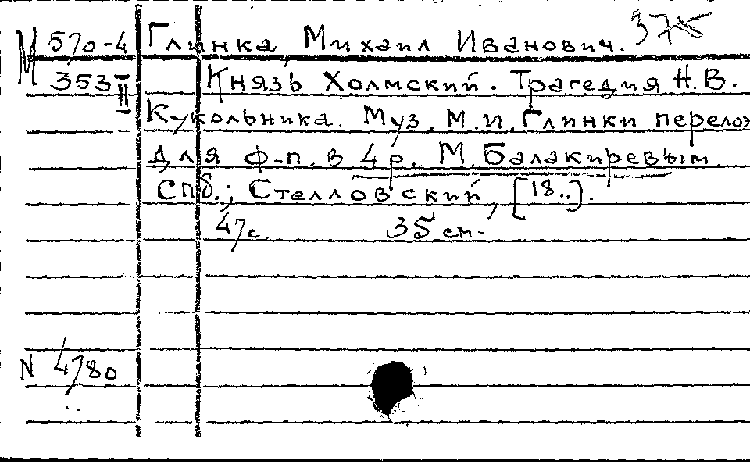 М 570-4 Глинка, Михаил Иванович. 375
353 II Князь Холмский. Трагедия Н.В.
Кукольника. Муз. М.И. Глинки перелож
для ф-п. в 4 р. М. Балакиревым.
Спб., Стелловский, [18..].
47с. 35 см.
N 4780